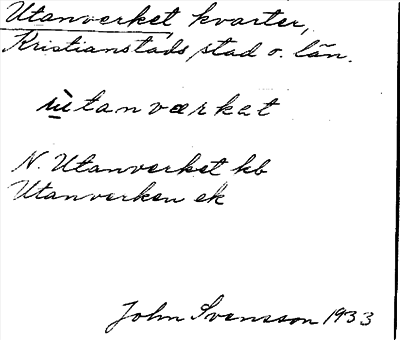 Utanverket, kvarter,
Kristianstads stad o. län.
ùtanværkat
N. Utanverket kb
Utanverken ek
John Svensson 1933